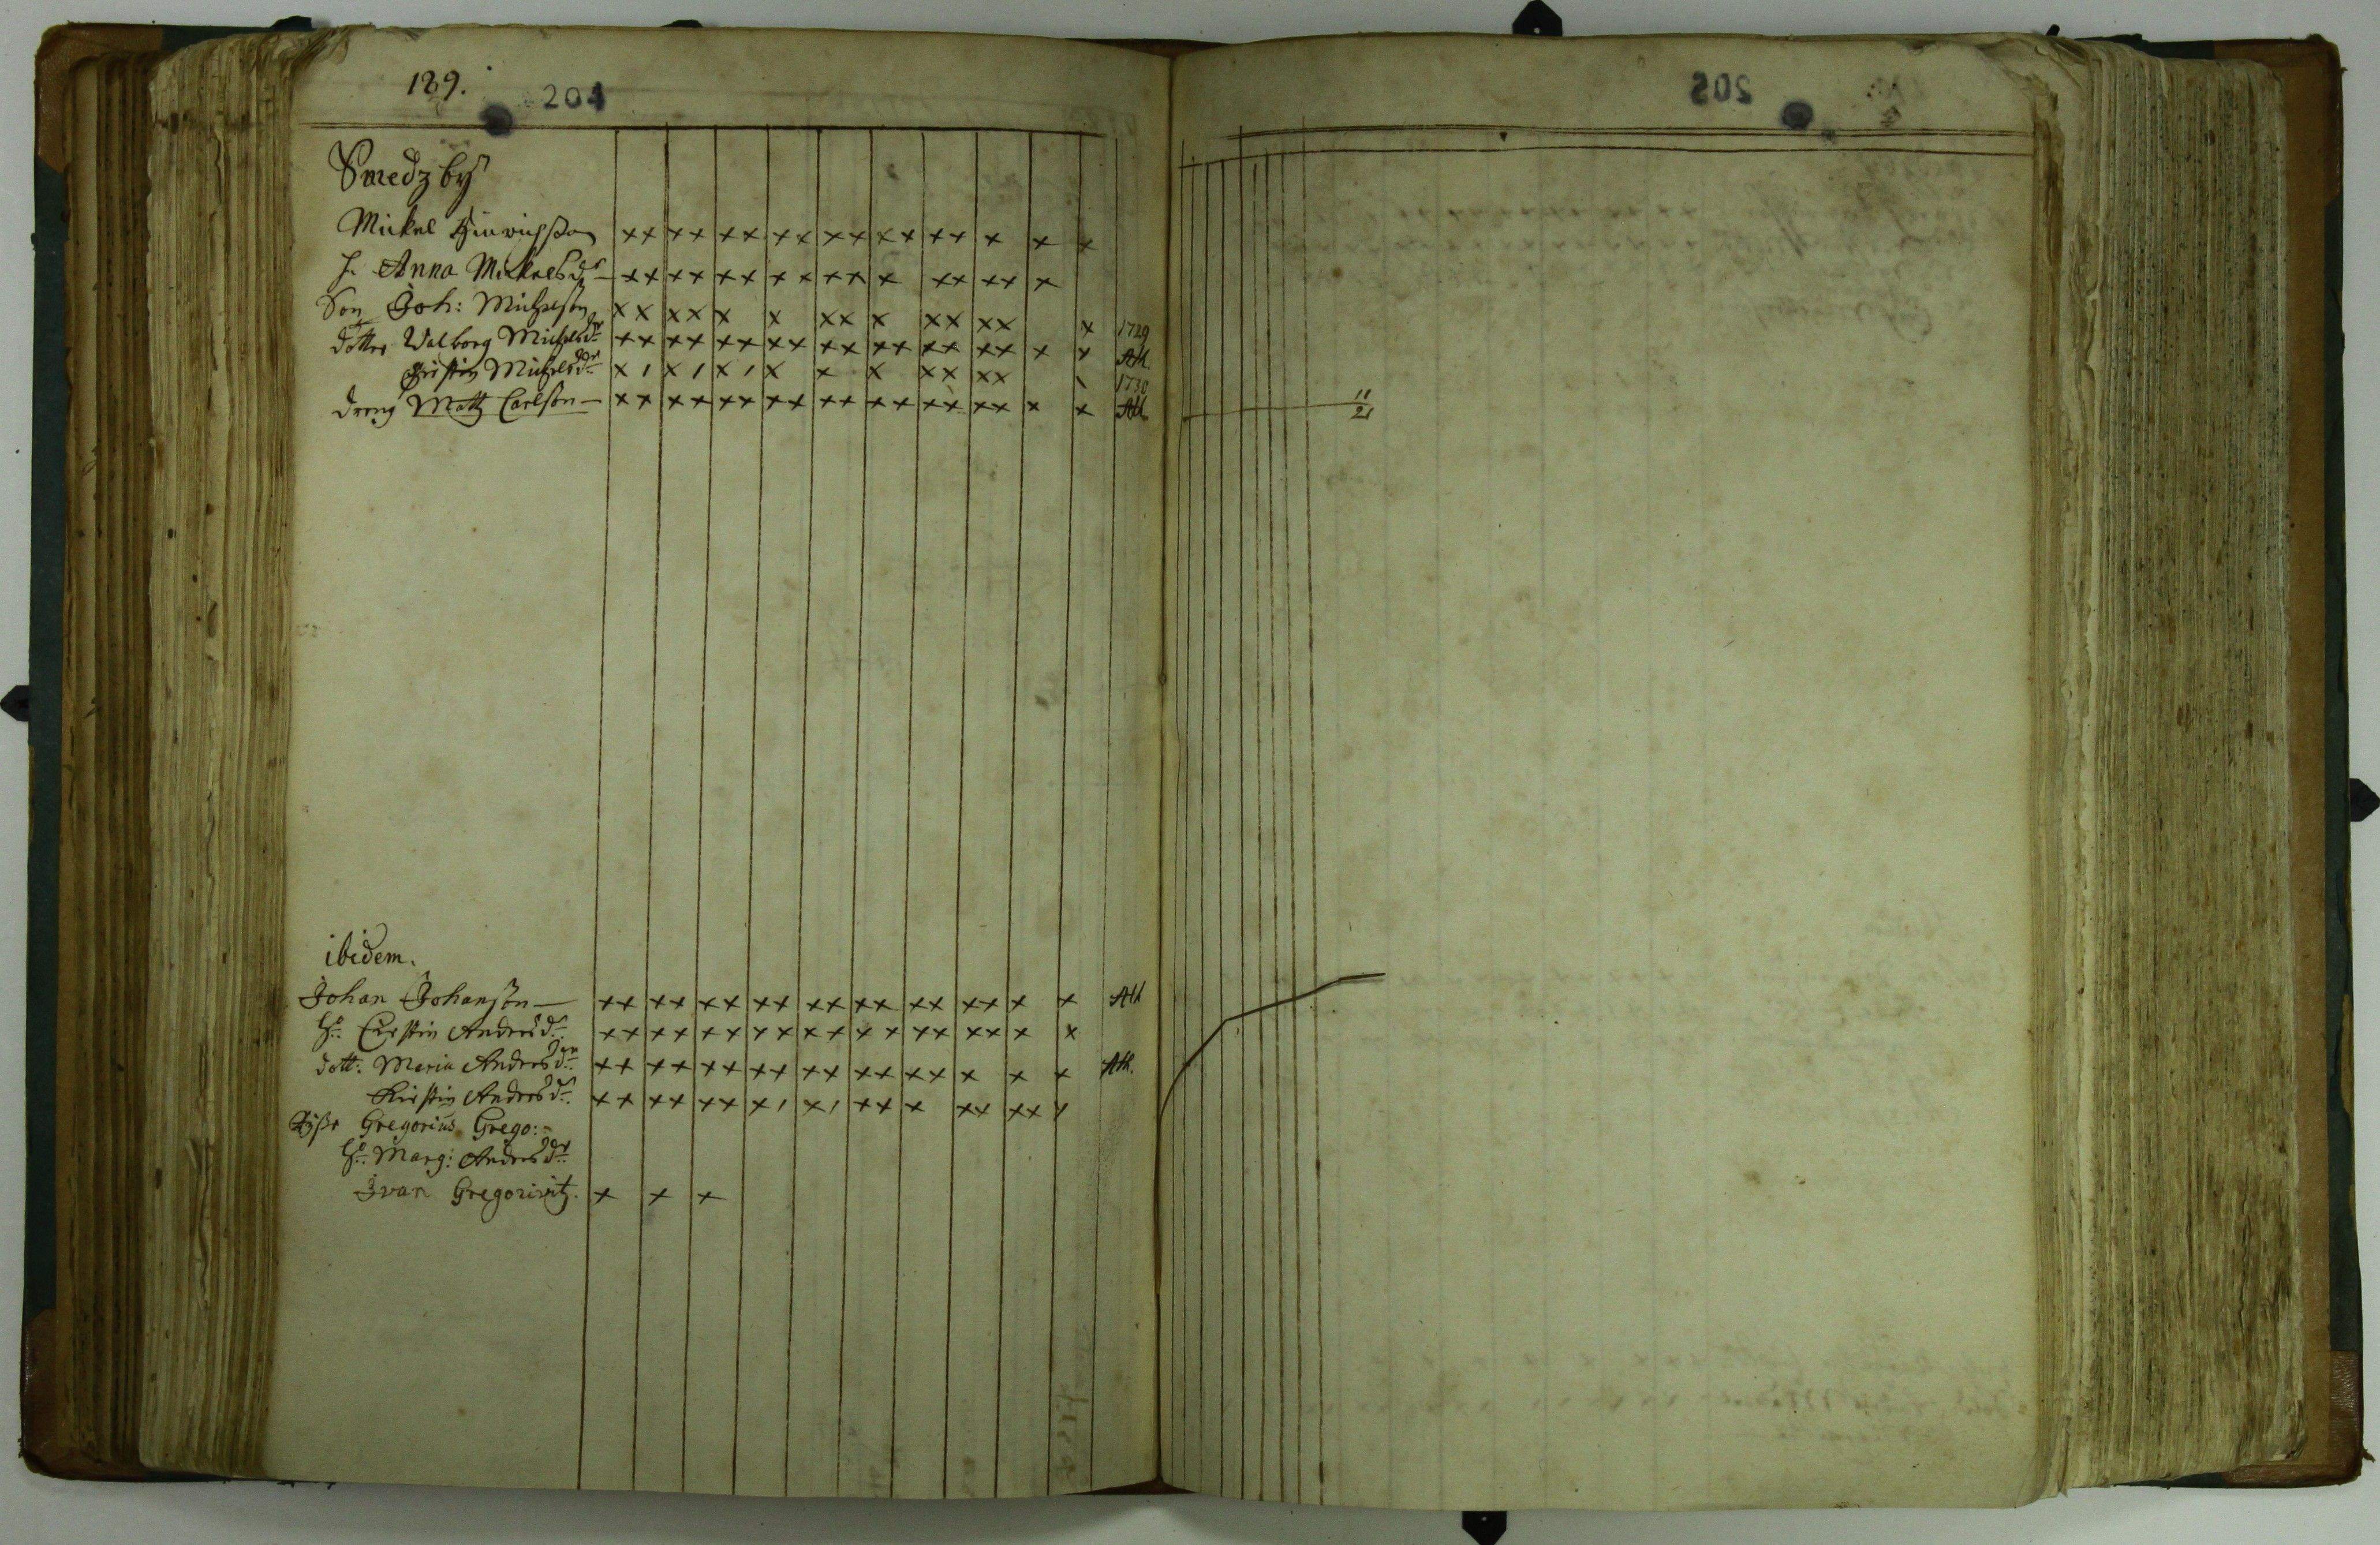 189. 204
205
Smedzby
Mickel Hinrichsson xx xx xx xx xx xx xx x x x
h. Anna Mickelsdr xx xx xx xx xx x xx xx x
Son Joh: Michelson xx xx x x xx x xx xx x 1729
dotter Walborg Michelsdr xx xx xx xx xx xx xx xx x x Att.
Kirstin Michelsdr x / x / x / x x x xx xx \ 1730
dreng Matz Carlson — xx xx xx xx xx xx xx xx x x Att. 11
21
ibidem.
Johan Johanson — xx xx xx xx xx xx xx xx x x Att
H: Cirstin Andersdr xx xx xx xx xx xx xx xx x x
dott: Maria Andersdr xx xx xx xx xx xx xx x x x Att.
Kirstin Andersdr. xx xx xx x/ x/ xx x xx xx x
Gregorius Grego:
H: Marg: Andersdr
Ivan Gregorivitz. x x x